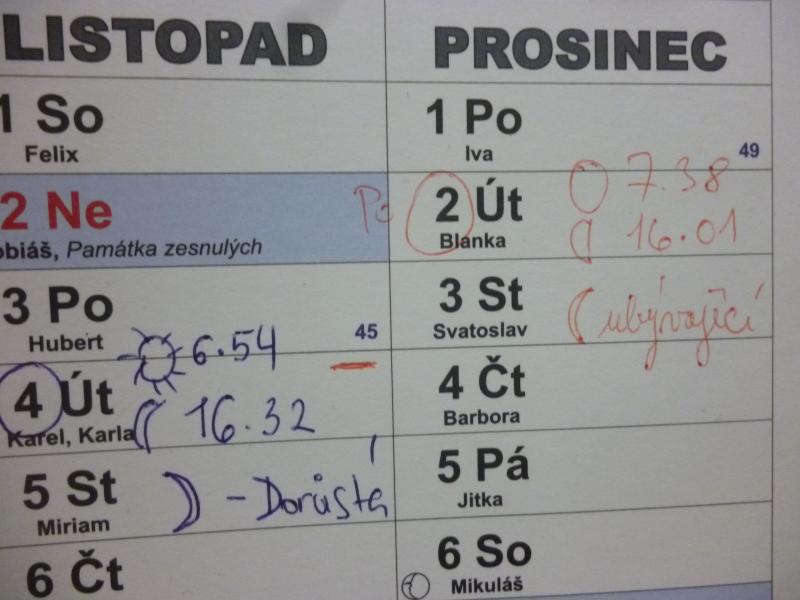 LISTOPAD
1 So
Felix
2 Ne
obiáš, Památka zesnulých
3 Po
Hubert
45
6.54
4 Út
Karel, Karla
16.32
5 St
Miriam
- Dorůstá
6 Čt
PROSINEC
1 Po
Iva
49
Po
2 Út
Blanka
7.38
16.01
3 St
Svatoslav
ubývající
4 Čt
Barbora
5 Pá
Jitka
6 So
Mikuláš